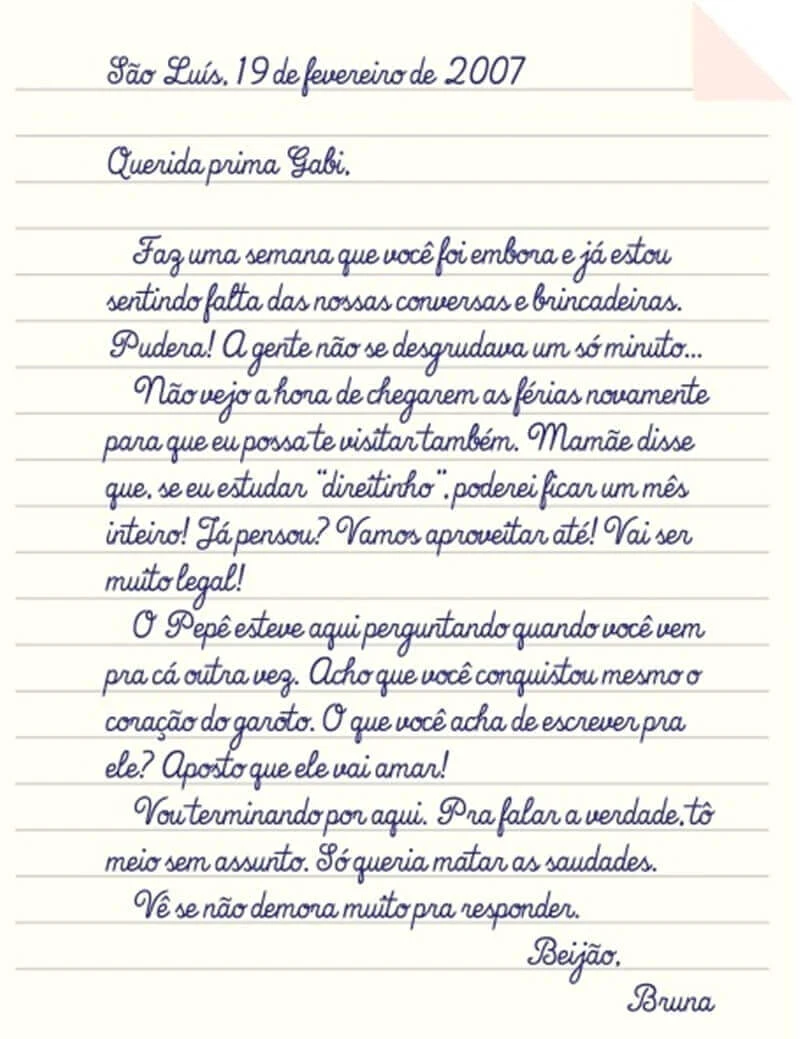 São Luís, 19 de fevereiro de 2007
Querida prima Gabi,
Faz uma semana que você foi embora e já estou
sentindo falta das nossas conversas e brincadeiras.
Pudera! A gente não se desgrudava um só minuto...
Não vejo a hora de chegarem as férias novamente
para que eu possa te visitar também. Mamãe disse
que, se eu estudar "direitinho", poderei ficar um mês
inteiro! Já pensou? Vamos aproveitar até! Vai ser
muito legal!
O Pepê esteve aqui perguntando quando você vem
pra cá outra vez. Acho que você conquistou mesmo o
coração do garoto. O que você acha de escrever pra
ele? Aposto que ele vai amar!
Vou terminando por aqui. Pra falar a verdade, tô
meio sem assunto. Só queria matar as saudades.
Vê se não demora muito pra responder.
Beijão,
Bruna